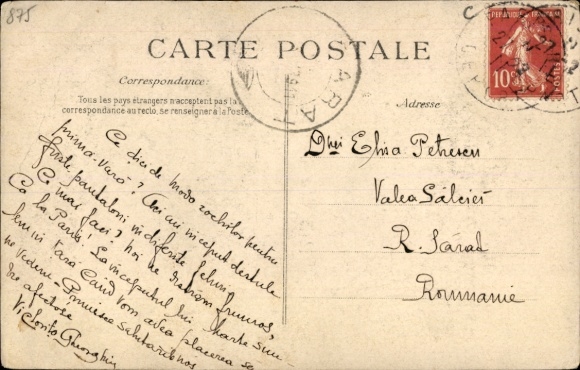 875
CARTE POSTALE
Correspondance
Tous les pays étrangers n'acceptent pas la
correspondance au recto, se renseigner à la Poste
Adresse
10c
Ce zici de moda rochiilor pentru
prima-vară? Aici au inceput destule
fuste pantaloni in diferite feluri.
Ce mai faci? Noi ne distrăm frumos,
Ca la Paris! La inceputul lui Martie sun-
tem in țară când vom avea placerea sa
ne vedem. Primesce salutările nos
tre afectoase
Victorița Gheorghiu
Dnei Elisa Petrescu
Valea Sălciei
R. Sărat
Roumanie